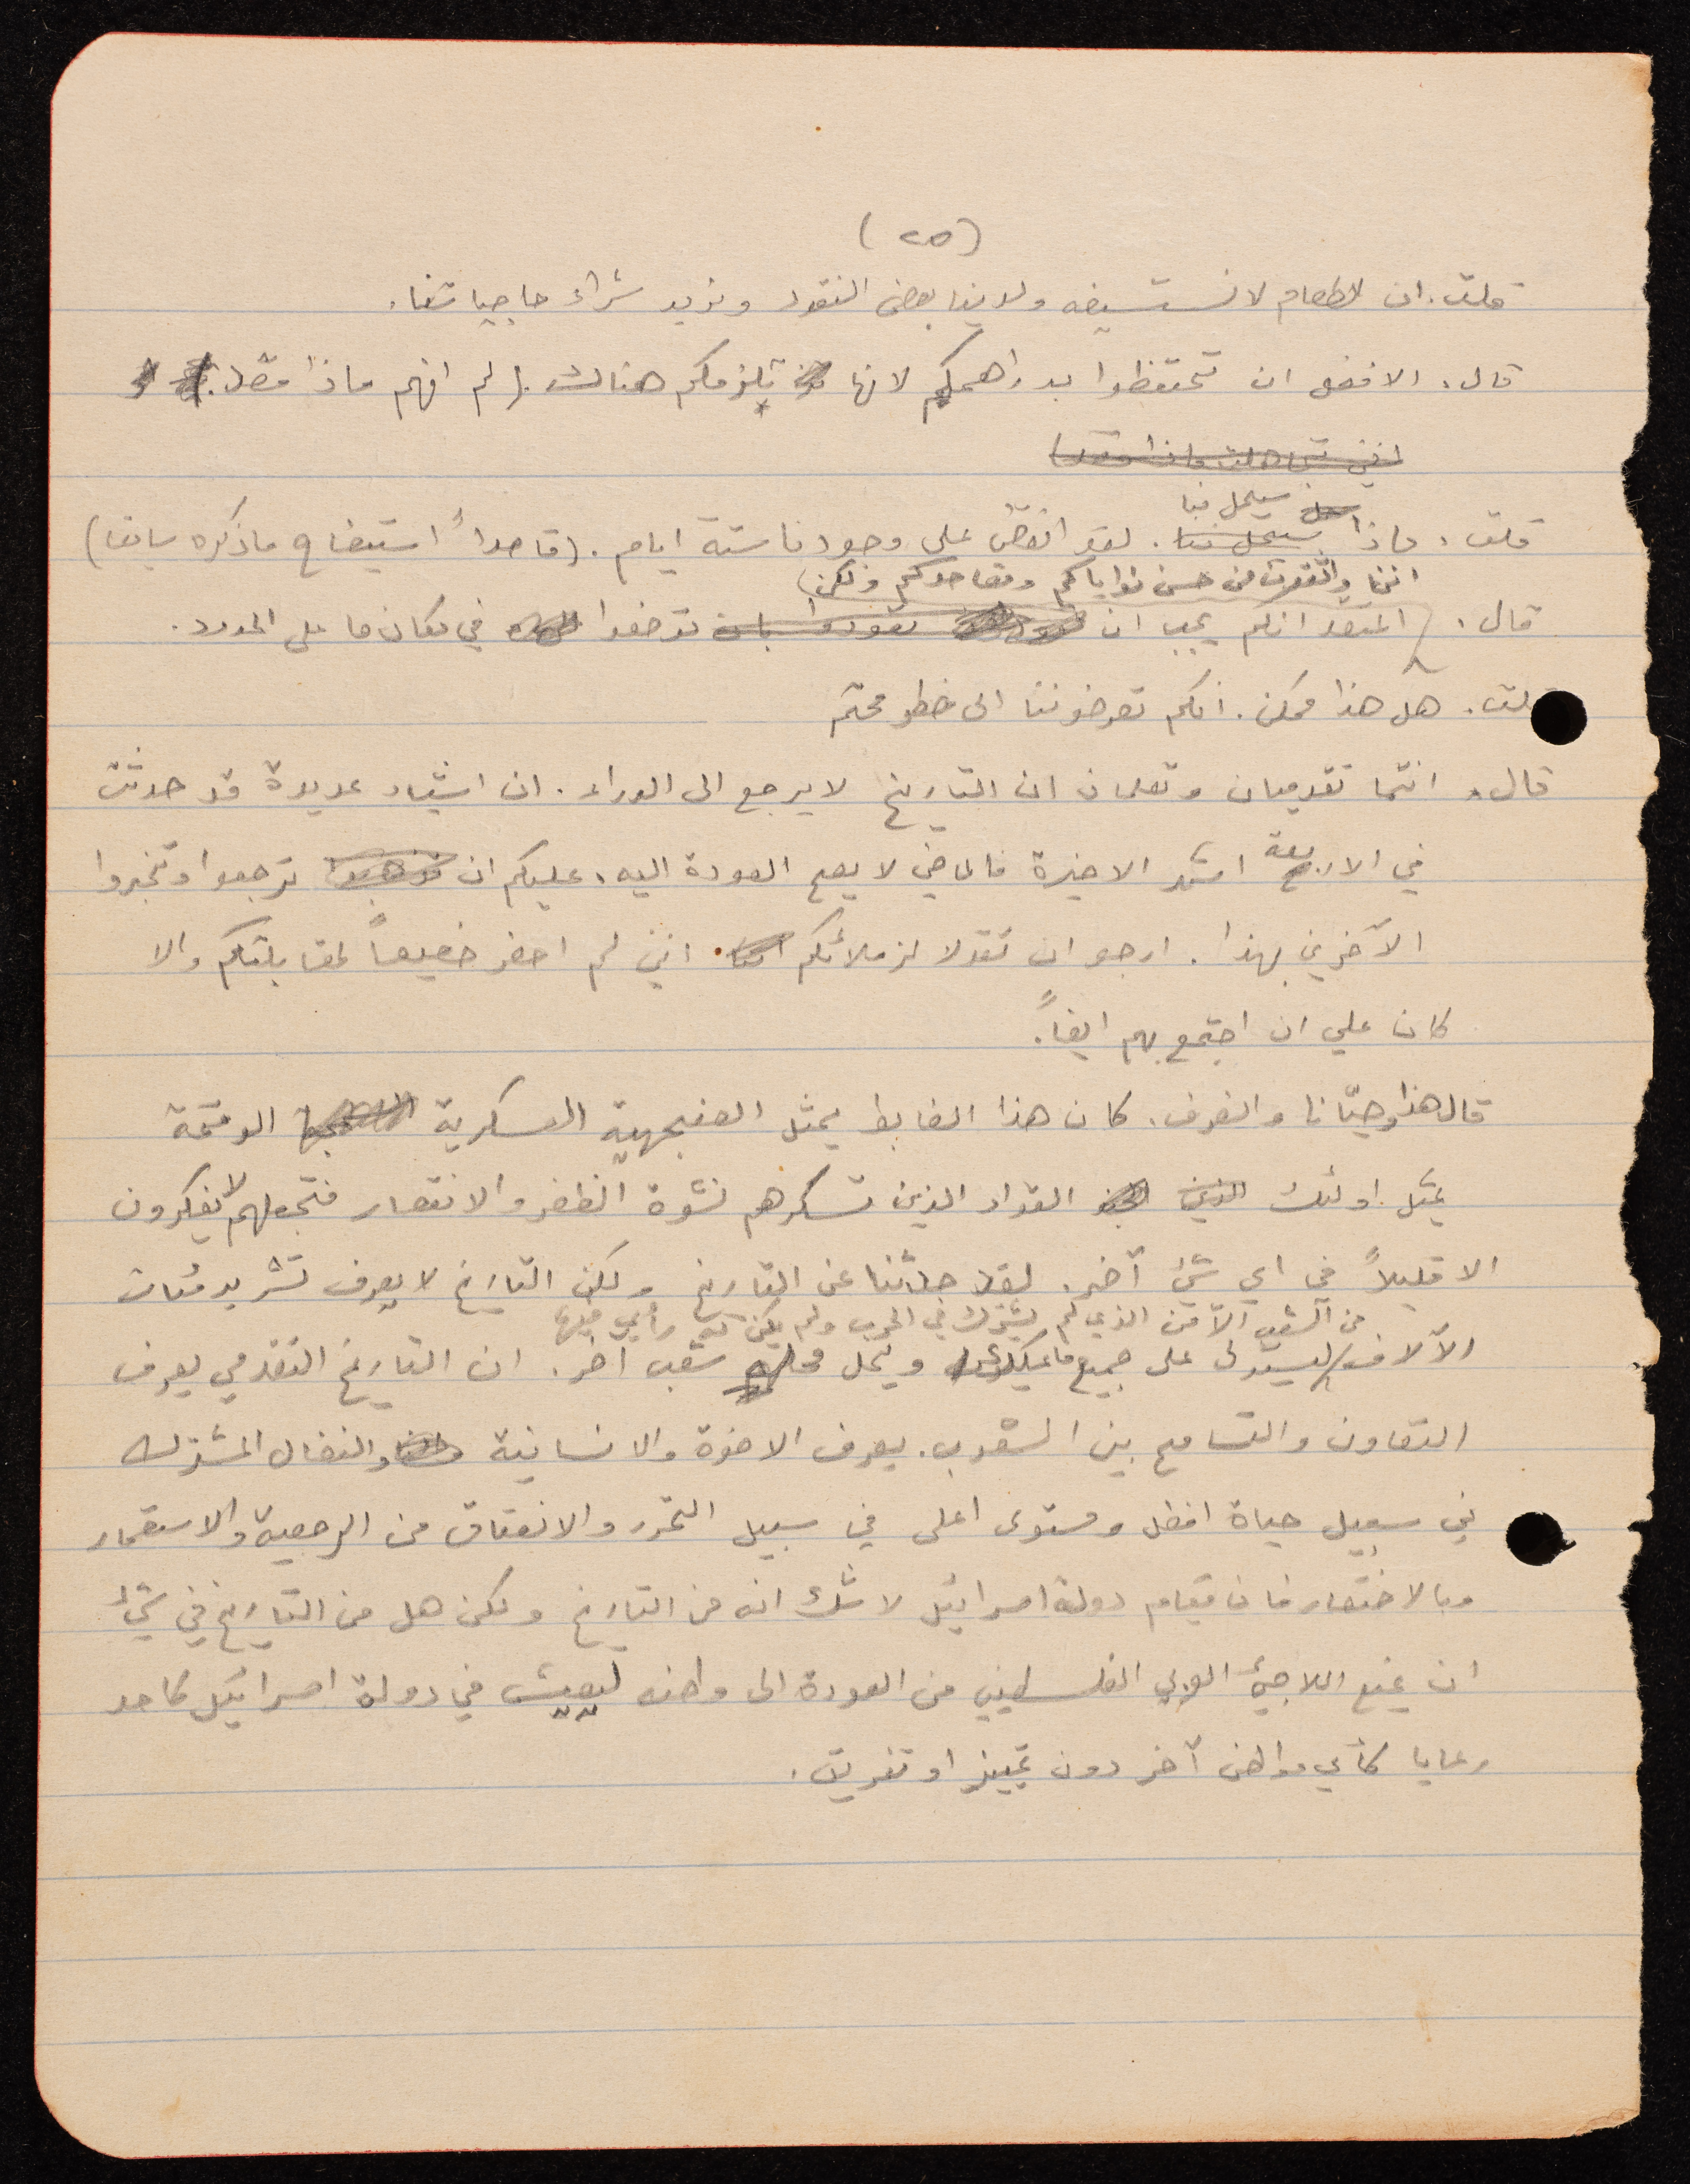 (٢٥)
قلت. ان الطعام لا نستسيغه ولدينا بعض النقود ونريد شراء حاجياتنا.
قال. الافضل ان تحتفظوا بدراهمكم لانها تلزمكم هناك. (لم افهم ماذا قصد.
انني تجاهلت ماذا قصد)
سيحل فينا
قلت. ماذا سيحل بنا. لقد انقضى على وجودنا ستة ايام. (قاصداً استيضاح ما ذكره سابقا)
اننا واثقون من حسن نواياكم ومقاصدكم ولكن
قال. اعتقد انكم يجب ان تعودوا بان توضعوا في مكان ما على الحدود.
قلت. هل هذا ممكن. انكم تعرضوننا الى خطر محتم
قال. انتما تقدميان وتعلمان ان التاريخ لا يرجع الى الوراء. ان اشياء عديدة قد حدثت
في الاربعة اشهر الاخيرة فالماضي لا يصح العودة اليه. عليكم ان تذهبوا ترجعوا وتخبروا
الآخرين بهذا. ارجو ان تقولا لزملائكم انني لم احضر خصيصاً لمقابلتكم والا
كان علي ان اجتمع بهم ايضاً.
قال هذا وحيّانا وانصرف. كان هذا الضابط يمثل العنجهية العسكرية الوقحة
يمثل اولئك الذين القواد الذين تسكرهم نشوة الظفر والانتصار فتجعلهم لا يفكرون
الا قليلاً في اي شئ آخر. لقد حدثنا عن التاريخ ولكن التاريخ لا يعرف تشريد مئات
من الشعب الآمن الذي لم يشترك في الحرب ولم يكن له رأي فيها
الآلاف ليستولى على جميع ما يملك ويحل محله شعب آخر. ان التاريخ التقدمي يعرف
التعاون والتسامح بين الشعوب. يعرف الاخوة والانسانية والنضال المشترك
في سبيل حياة افضل ومستوى اعلى في سبيل التحرر والانعتاق من الرجعية والاستعمار
وبالاختصار فان قيام دولة اسرائيل لا شك انه من التاريخ ولكن هل من التاريخ في شئ
ان يمنع اللاجئ العربي الفلسطيني من العودة الى وطنه ليعيش في دولة اسرائيل كاحد
رعايا كأي مواطن آخر دون تمييز او تفريق.